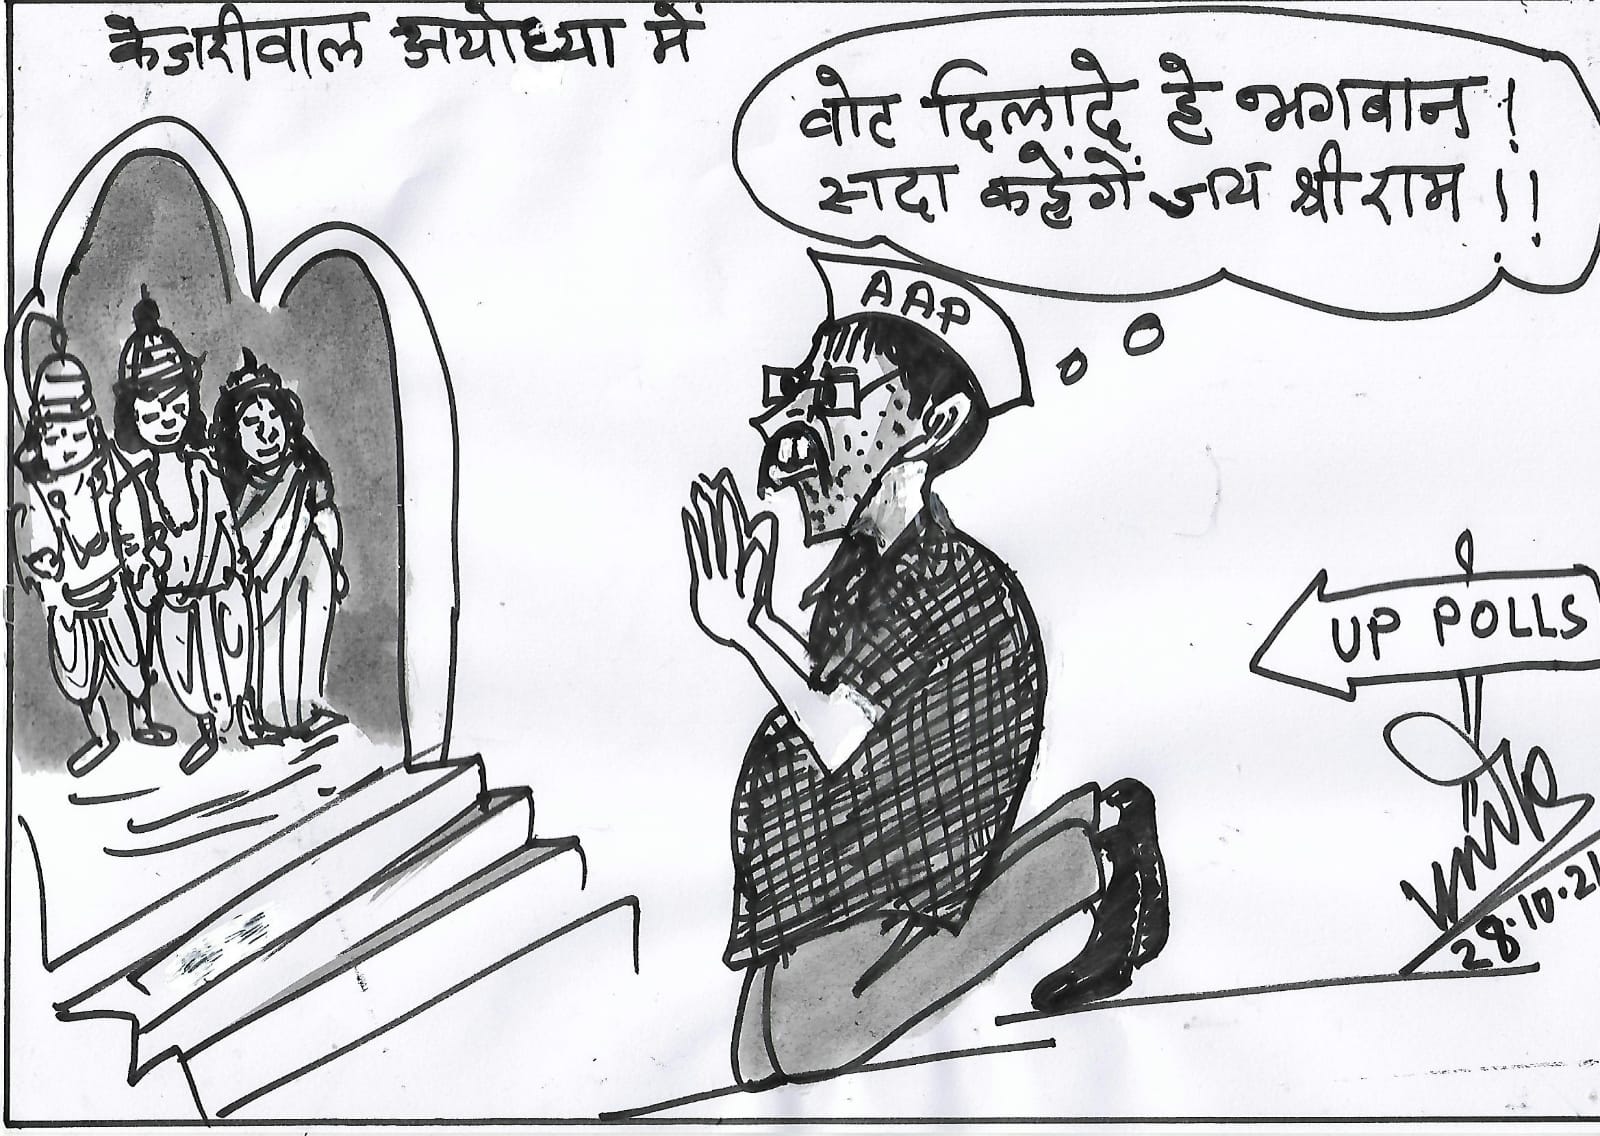 केजरीवाल अयोध्या में
वोट दिलादे हे भगवान!
सदा कहेंगें जय श्री राम!!
AAP
UP POLLS
28.10.21